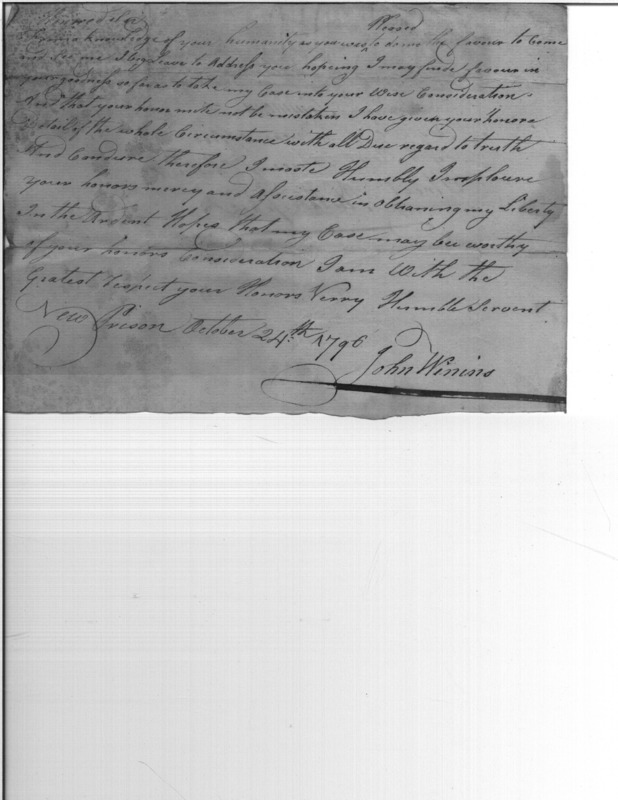 Honored Sir
Pleased
From a knowledge of your humanity as you was to do me the favour to Come
and See me I beg leave to Address you hoping I may finde favour in
your goodness so far as to take my Case into your Wise Consideration
And that your honor mite not be mistaken I have given your Honor a
Detail of the whole Circumstance with all Due regard to truth
And Candure therefore I moste Humbly Imploure
your honors mercy and Assistance in obtaining my Liberty
In the Ardent Hopes that my Case may bee worthy
of your honors Consideration I am With the
Gratest respect your Honors Verry Humble Servent
New Prison October 24th 1796
John Winins